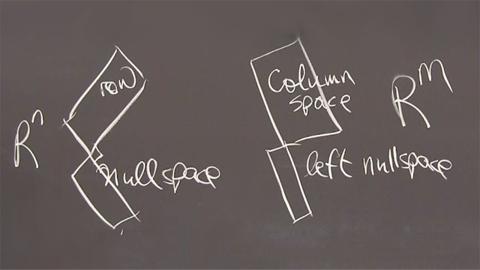 row
R^n
nullspace
Column
space
R^M
left nullspace